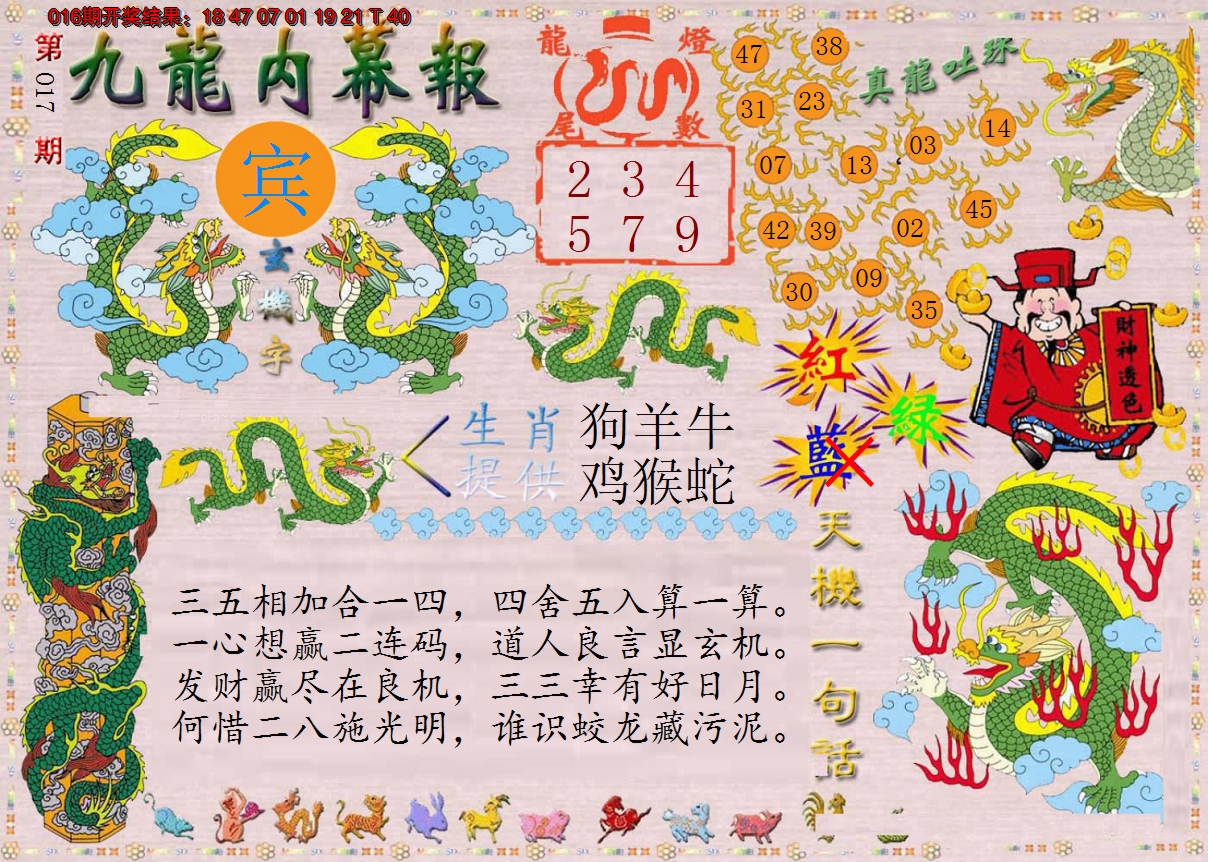 016期开奖结果：18 47 07 01 19 21 T 40
第017期
九龍内幕報
宾
玄機字
龍燈
尾數
2 3 4
5 7 9
真龍吐珠
47 38
31 23
07 13 03 14
42 39 02 45
30 09 35
財神透色
紅
綠
藍
生肖提供
狗羊牛
鸡猴蛇
天機一句話
三五相加合一四，四舍五入算一算。
一心想赢二连码，道人良言显玄机。
发财赢尽在良机，三三幸有好日月。
何惜二八施光明，谁识蛟龙藏污泥。